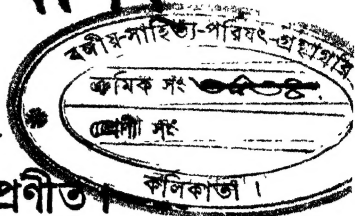 বঙ্গীয়-সাহিত্য-পরিষৎ-গ্রন্থাগার
ক্রমিক সং
শ্রেণী সং
কলিকাতা ।
প্রণীত ।